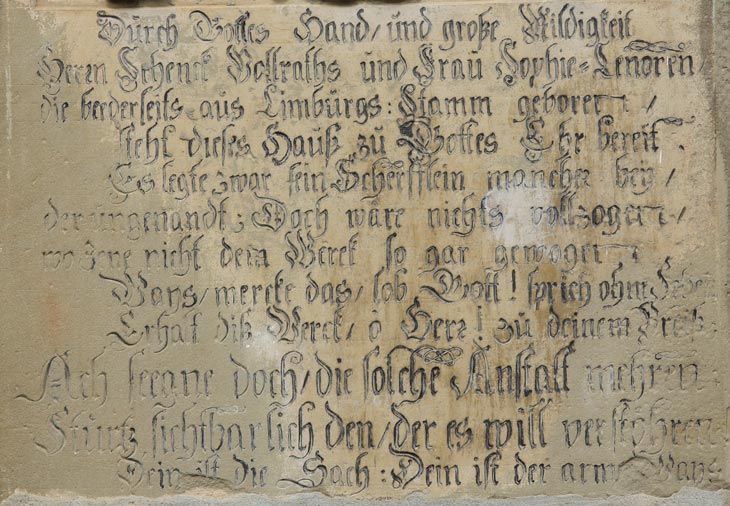 Durch Gottes Hand/ und große Mildigkeit
Herrn Schenck Vollraths und Frau Sophie=Lenoren/
die beederseits aus Limburgs=Stamm geboren/
steht dieses Hauß zu Gottes Ehr bereit.
Es legte zwar sein Scherfflein mancher bey/
der ungenandt; Doch wäre nichts vollzogen/
wo Jene nicht dem Werck so gar gewogen
Ways/ mercke das/ lob Gott! sprich ohne
Erhat diß Werck/ o Herr! zu deinem Preiß
Ach seegne doch/ die solche Anstalt mehren
Stürtz sichtbarlich den/ der es will verstöhren
Dein ist die Sach: Dein ist der arm Ways